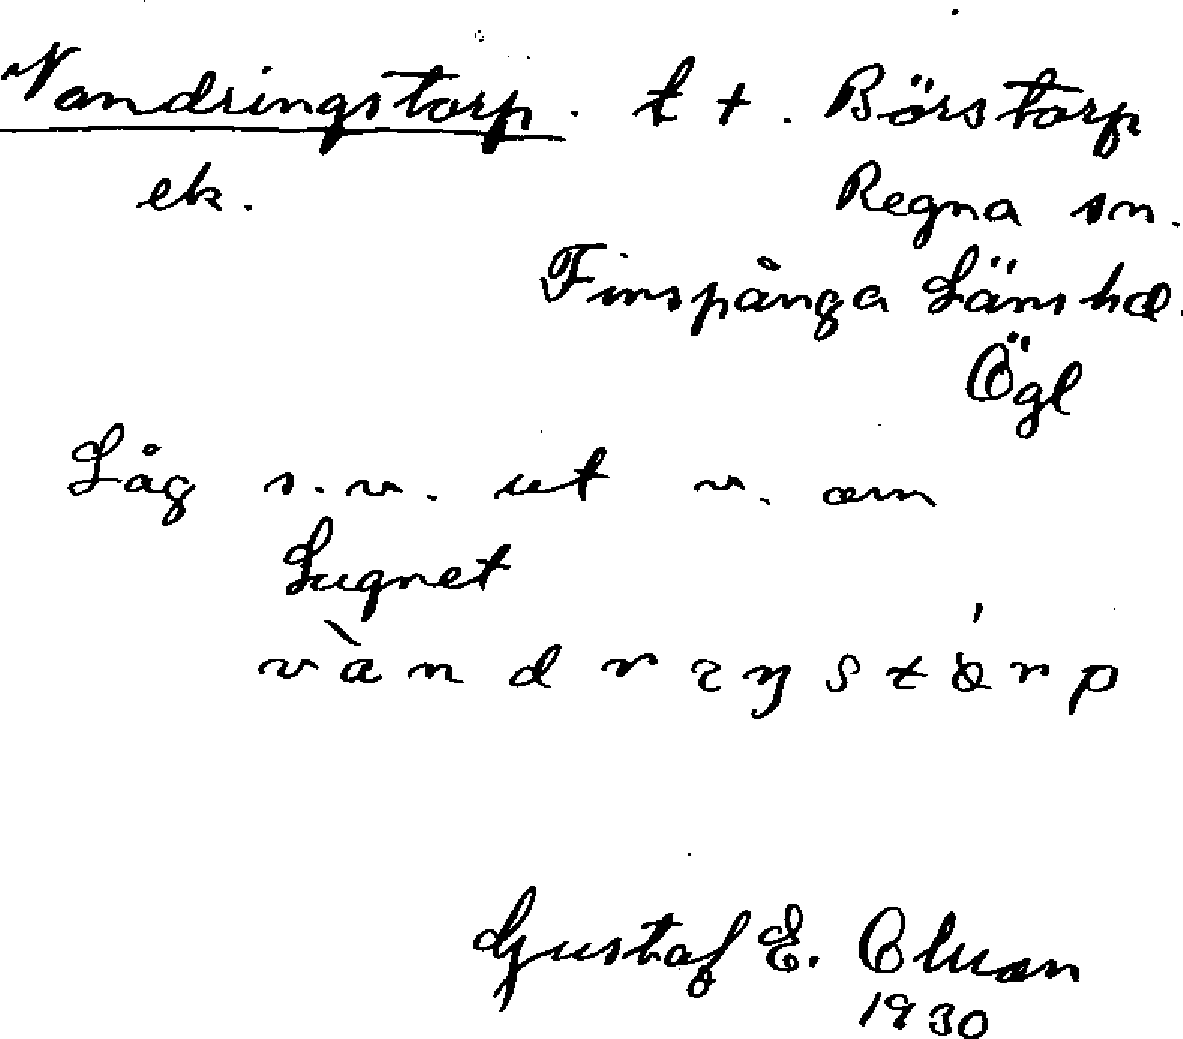 Vandringstorp. t t. Börstorp
ek. Regna sn.
Finspånga Läns hd.
Ögl
Låg s.v. ut v. om
Lugnet
và n d r ı ŋ s t ȧ́ r p
Gustaf E.
1930